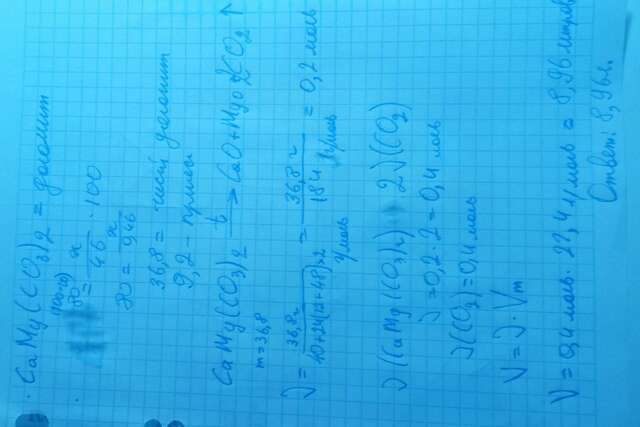 CaMg(CO3)2 = доломит
(100-20)
80 = x/46 · 100
80 = x/0,46
36,8 = чист доломит
9,2 - примеси
CaMg(CO3)2 t→ CaO + MgO + 2CO2 ↑
m = 36,8
ν = 36,8г / 40+24+(12+48)·2 г/моль = 36,8г / 184 г/моль = 0,2 моль
ν(CaMg(CO3)2) 2ν(CO2)
ν = 0,2 · 2 = 0,4 моль
ν(CO2) = 0,4 моль
V = ν · Vm
V = 0,4 моль · 22,4 л/моль = 8,96 литров
Ответ: 8,96л.